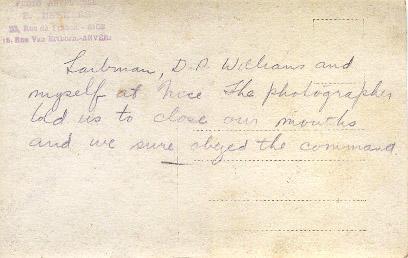 33, Rue de France - NICE
Rue Van Ertborn - ANVERS
Laibman, D.P. Williams and
myself at Nice The photographer
told us to close our mouths
and we sure obeyed the command.